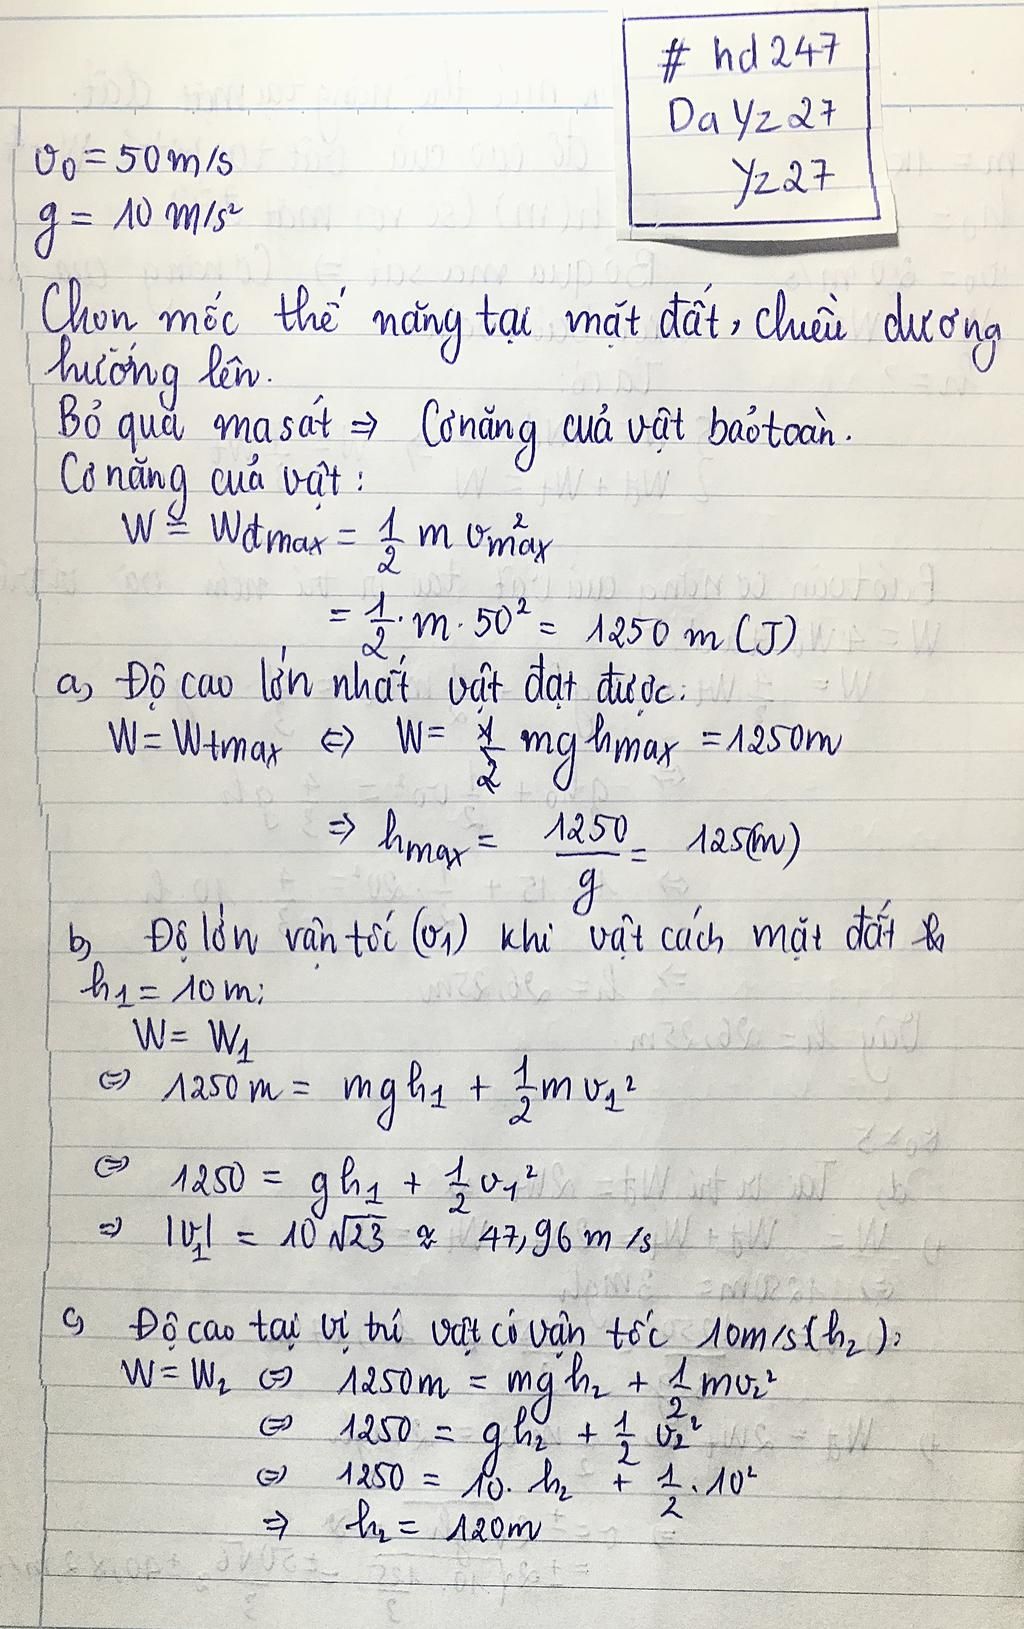 # hd247
Da Yz27
Yz27
v₀ = 50m/s
g = 10 m/s²
Chọn mốc thế năng tại mặt đất, chiều dương
hướng lên.
Bỏ qua ma sát => Cơ năng của vật bảo toàn.
Cơ năng của vật:
W = Wđmax = 1/2 m v²max
= 1/2 . m . 50² = 1250 m (J)
a, Độ cao lớn nhất vật đạt được:
W = Wtmax <=> W = mg hmax = 1250m
=> hmax = 1250/g = 125(m)
b, Độ lớn vận tốc (v₁) khi vật cách mặt đất
h₁ = 10m:
W = W₁
<=> 1250m = mgh₁ + 1/2 m v₁²
<=> 1250 = gh₁ + 1/2 v₁²
=> |v₁| = 10√23 ≈ 47,96 m/s
c, Độ cao tại vị trí vật có vận tốc 10m/s (h₂):
W = W₂ <=> 1250m = mgh₂ + 1/2 mv₂²
<=> 1250 = gh₂ + 1/2 v₂²
<=> 1250 = 10. h₂ + 1/2 . 10²
=> h₂ = 120m